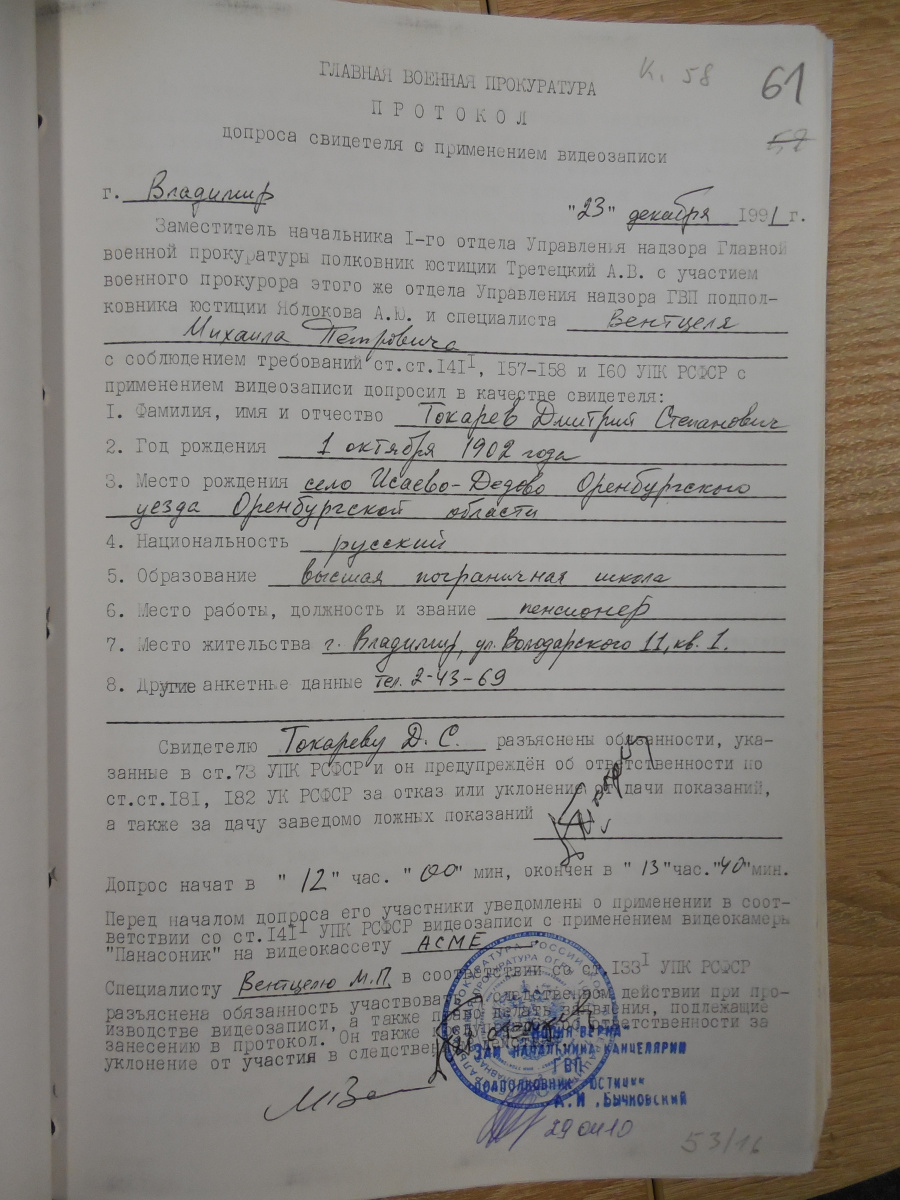 К. 58
61
ГЛАВНАЯ ВОЕННАЯ ПРОКУРАТУРА
ПРОТОКОЛ
допроса свидетеля с применением видеозаписи
г. Владимир "23" декабря 1991 г.
Заместитель начальника I-го отдела Управления надзора Главной
военной прокуратуры полковник юстиции Третецкий А.В. с участием
военного прокурора этого же отдела Управления надзора ГВП подпол-
ковника юстиции Яблокова А.Ю. и специалиста Вентцеля
Михаила Петровича
с соблюдением требований ст.ст.I4I¹, I57-I58 и I60 УПК РСФСР с
применением видеозаписи допросил в качестве свидетеля:
I. Фамилия, имя и отчество Токарев Дмитрий Степанович
2. Год рождения 1 октября 1902 года
3. Место рождения село Исаево-Дедово Оренбургского
уезда Оренбургской области
4. Национальность русский
5. Образование высшая пограничная школа
6. Место работы, должность и звание пенсионер
7. Место жительства г. Владимир, ул. Володарского 11, кв. 1.
8. Другие анкетные данные тел. 2-43-69
Свидетелю Токареву Д.С. разъяснены обязанности, ука-
занные в ст.73 УПК РСФСР и он предупреждён об ответственности по
ст.ст.I8I, I82 УК РСФСР за отказ или уклонение от дачи показаний,
а также за дачу заведомо ложных показаний
Допрос начат в "12" час. "00" мин, окончен в "13" час. "40" мин.
Перед началом допроса его участники уведомлены о применении в соот-
ветствии со ст.I4I¹ УПК РСФСР видеозаписи с применением видеокамеры
"Панасоник" на видеокассету АСМЕ
Специалисту Вентцелю М.П. в соответствии со ст.I33¹ УПК РСФСР
разъяснена обязанность участвовать в следственном действии при про-
изводстве видеозаписи, а также право делать заявления, подлежащие
занесению в протокол. Он также предупреждён об ответственности за
уклонение от участия в следственном
КОПИЯ ВЕРНА
ЗАМ НАЧАЛЬНИКА КАНЦЕЛЯРИИ
ГВП
ПОДПОЛКОВНИК ЮСТИЦИИ
А.И. Бычковский
290410
53/16